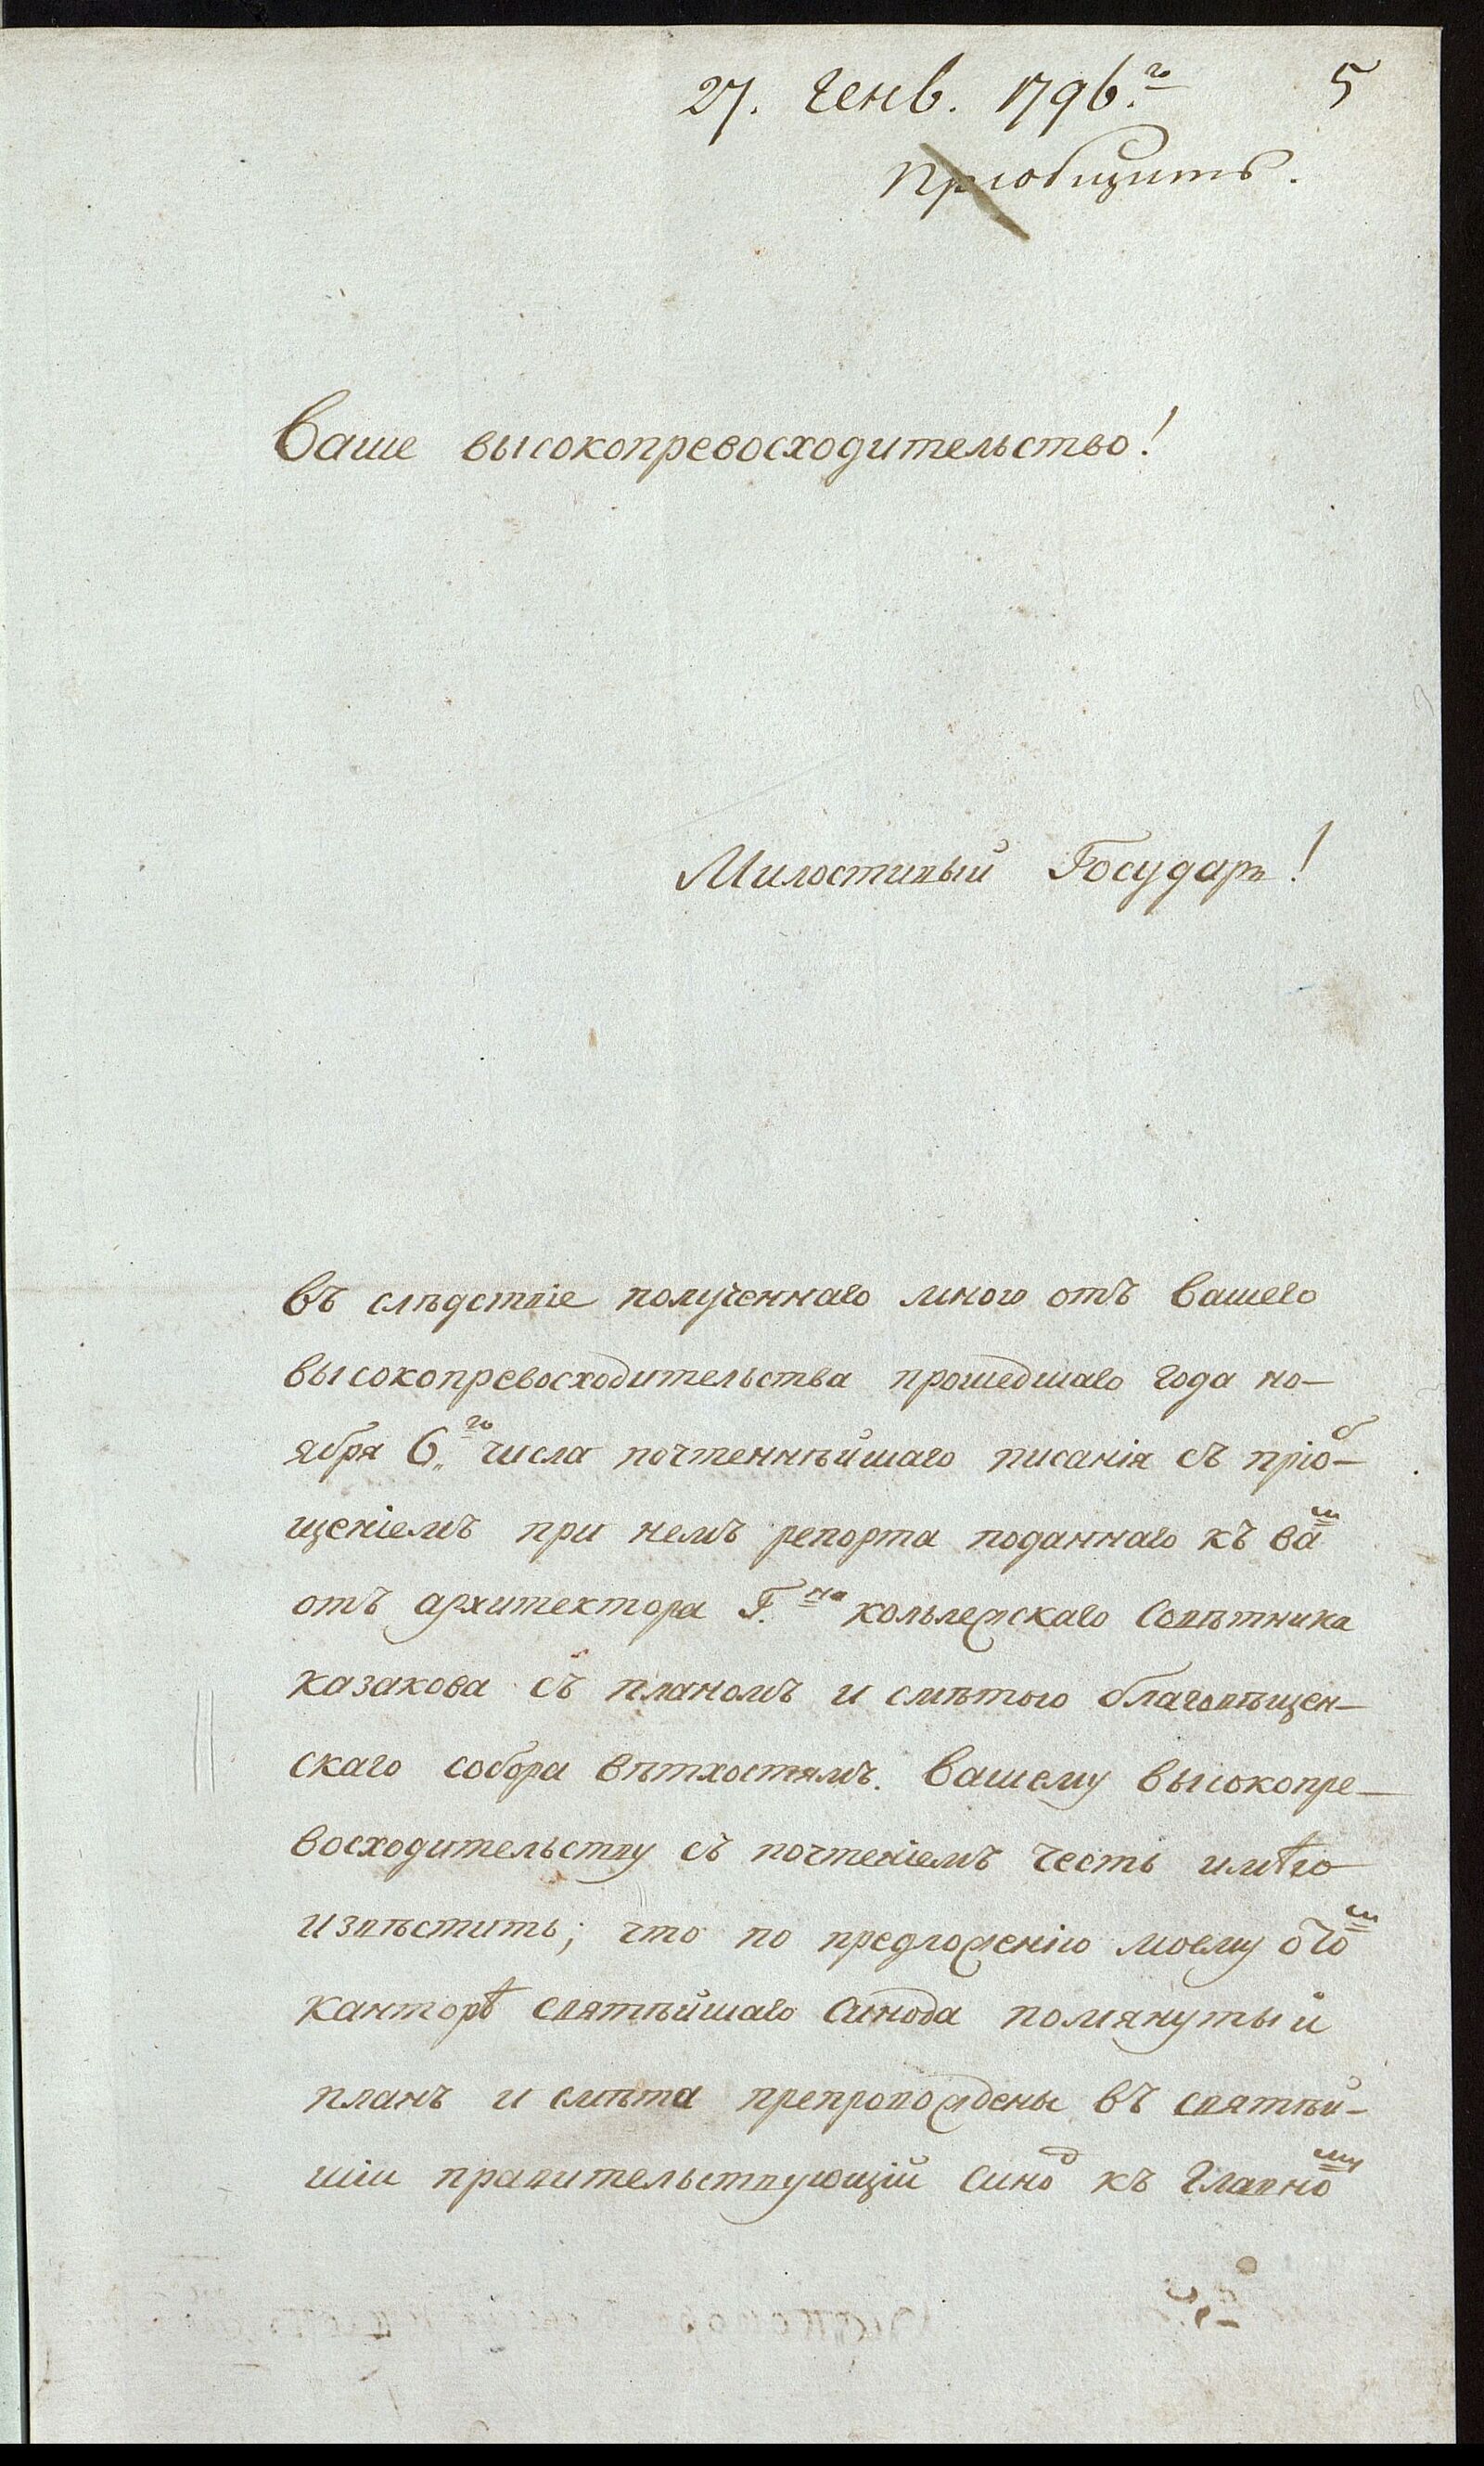 27. Генв. 1796.го 5
Пріобщить.
Ваше высокопревосходительство!
Милостивый Государь!
Въ слѣдствіе полученнаго мною отъ Вашего
высокопревосходительства прошедшаго года но-
ября 6.го числа почтеннѣйшаго писанія съ пріоб-
щеніемъ при немъ репорта поданнаго къ вам
отъ архитектора Г.на кольлежскаго Совѣтника
казакова съ планомъ и смѣтою благовѣщен-
скаго собора вѣтхостямъ. Вашему высокопре-
восходительству съ почтеніемъ честь имѣю
извѣстить; что по предложенію моему о том
канторѣ святѣйшаго Синода помянутый
планъ и смѣта препровождены въ святѣй-
шіи правительствующій Синод къ главному